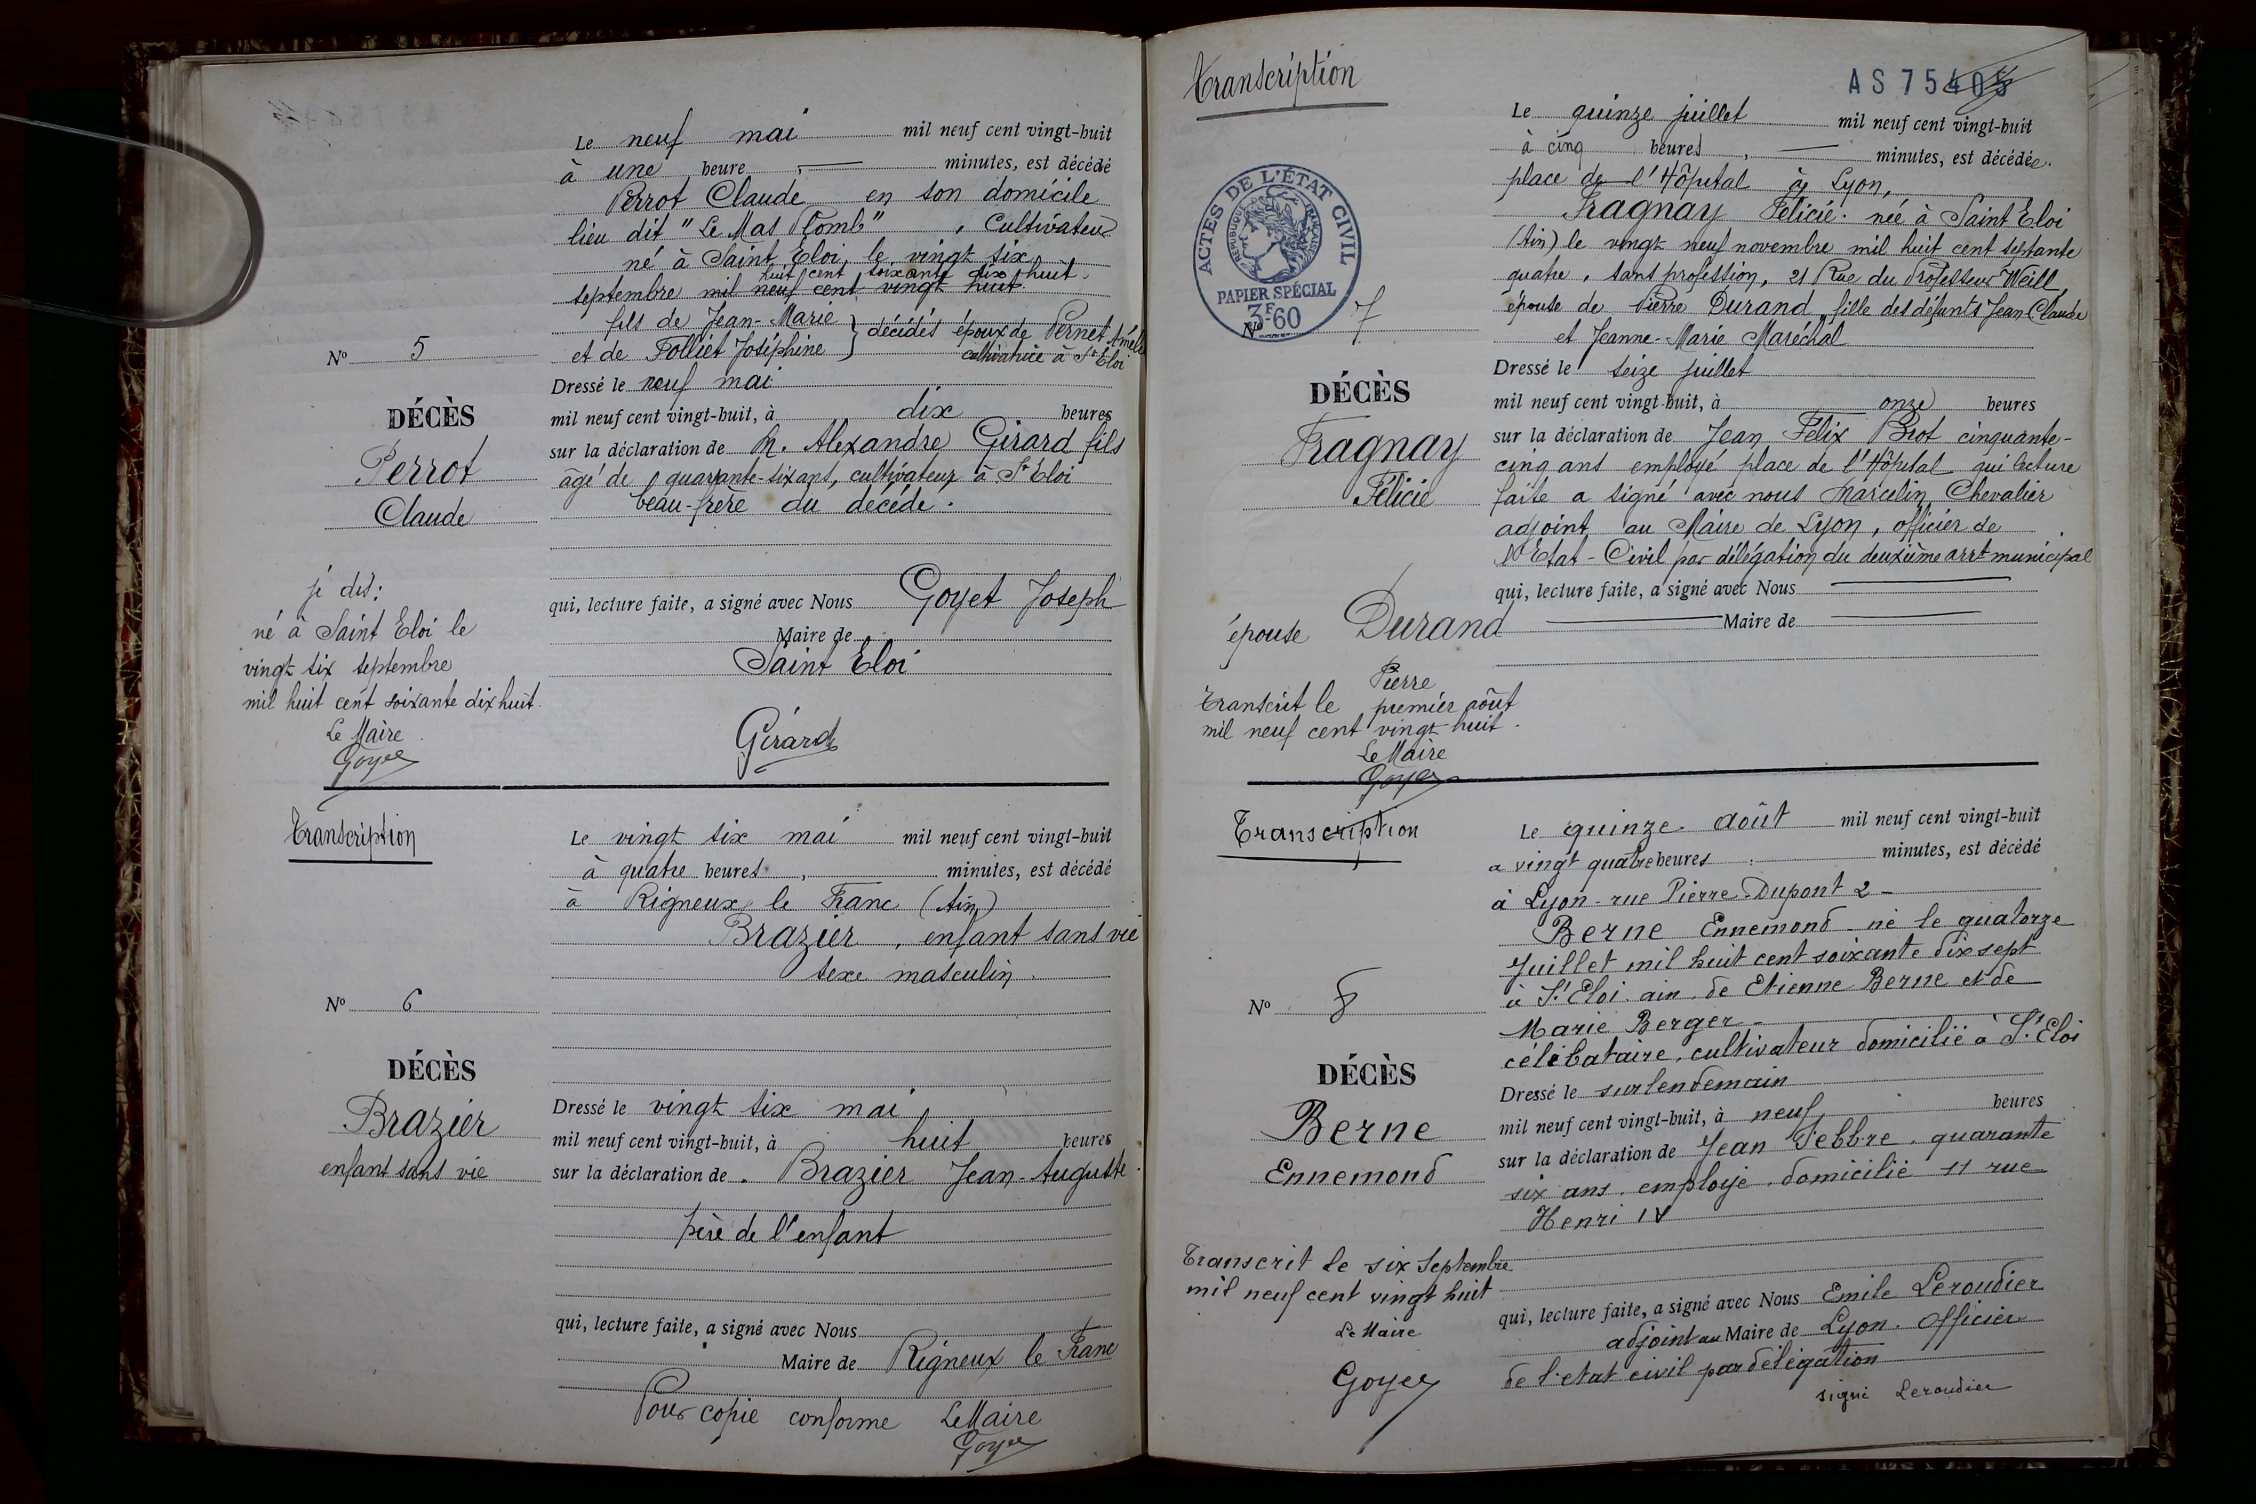 Le neuf mai mil neuf cent vingt-huit
à une heure, — minutes, est décédé
Perrot Claude en son domicile
lieu dit "Le Mas Plomb", Cultivateur
né à Saint Eloi, le vingt six
huit cent soixante dix huit.
septembre mil neuf cent vingt huit
fils de Jean-Marie
et de Folliet Joséphine } décédés époux de Pernet Amélie
cultivatrice à St Eloi
Nº 5
DÉCÈS
Perrot
Claude
Dressé le neuf mai
mil neuf cent vingt-huit, à dix heures
sur la déclaration de M. Alexandre Girard fils
âgé de quarante-six ans, cultivateur à St Eloi
beau-frère du décédé.
qui, lecture faite, a signé avec Nous Goyet Joseph
Maire de
Saint Eloi
Girard
je dis:
né à Saint Eloi le
vingt six septembre
mil huit cent soixante dix huit.
Le Maire
Goyet
Transcription
Le vingt six mai mil neuf cent vingt-huit
à quatre heures, minutes, est décédé
à Rigneux le Franc (Ain)
Brazier, enfant sans vie
sexe masculin.
Nº 6
DÉCÈS
Brazier
enfant sans vie
Dressé le vingt six mai
mil neuf cent vingt-huit, à huit heures
sur la déclaration de Brazier Jean-Auguste.
père de l'enfant
qui, lecture faite, a signé avec Nous
Maire de Rigneux le Franc
Pour copie conforme Le Maire
Goyet
Transcription
AS 75405
ACTES DE L'ÉTAT CIVIL
RÉPUBLIQUE FRANÇAISE
PAPIER SPÉCIAL
3F60
Le quinze juillet mil neuf cent vingt-huit
à cinq heures, — minutes, est décédée.
place de l'Hôpital à Lyon,
Fragnay Félicie. née à Saint Eloi
(Ain) le vingt neuf novembre mil huit cent septante
quatre, sans profession, 21 Rue du Professeur Weill,
épouse de Pierre Durand fille des défunts Jean Claude
et Jeanne-Marie Maréchal
Nº 7
DÉCÈS
Fragnay
Félicie
épouse Durand
Pierre
Transcrit le premier août
mil neuf cent vingt huit.
Le Maire
Goyet
Dressé le seize juillet
mil neuf cent vingt-huit, à onze heures
sur la déclaration de Jean Félix Brot cinquante-
cinq ans employé place de l'Hôpital qui lecture
faite a signé avec nous Marcelin Chevalier
adjoint au Maire de Lyon, officier de
l'Etat-Civil par délégation du deuxième arrt municipal
qui, lecture faite, a signé avec Nous
Maire de
Transcription
Le quinze août mil neuf cent vingt-huit
a vingt quatre heures : minutes, est décédé
à Lyon - rue Pierre-Dupont 2 -
Berne Ennemond né le quatorze
Juillet mil huit cent soixante dix sept
à St Eloi. ain. de Etienne Berne et de
Marie Berger -
célibataire. cultivateur domicilié à St Eloi
Nº 8
DÉCÈS
Berne
Ennemond
Transcrit le six Septembre
mil neuf cent vingt huit
Le Maire
Goyet
Dressé le surlendemain
mil neuf cent vingt-huit, à neuf heures
sur la déclaration de Jean Febbre. quarante
six ans. employé. domicilié 11 rue
Henri IV
qui, lecture faite, a signé avec Nous Emile Leroudier
adjoint au Maire de Lyon. Officier
de l'etat civil par délégation
signé Leroudier